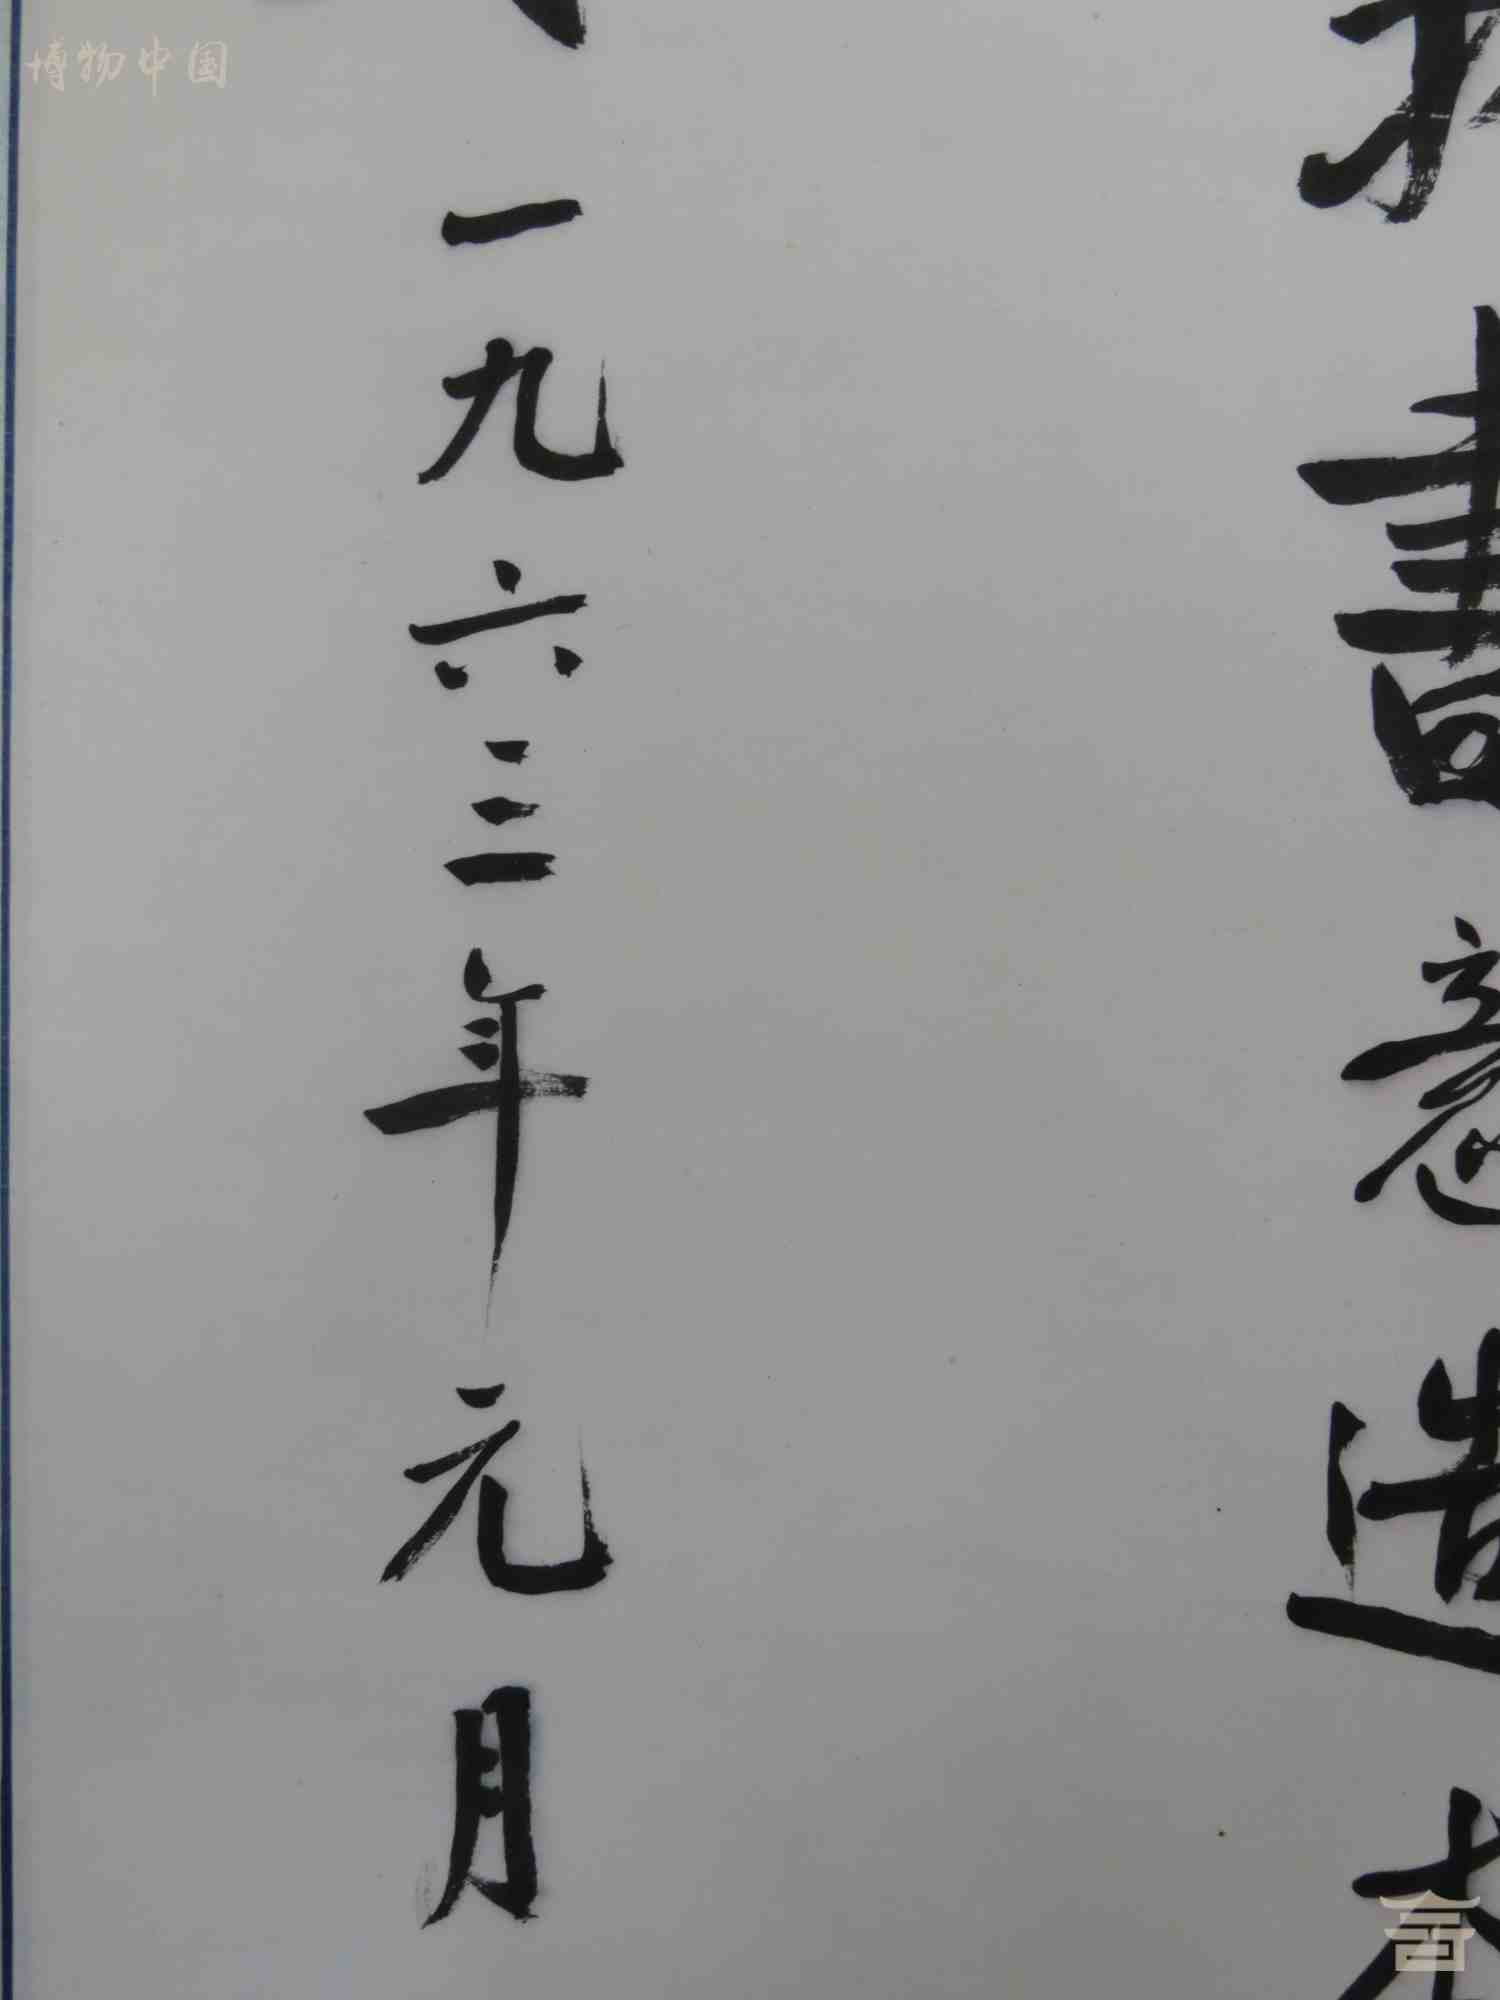 博物中国
書意造本
一九六三年元月